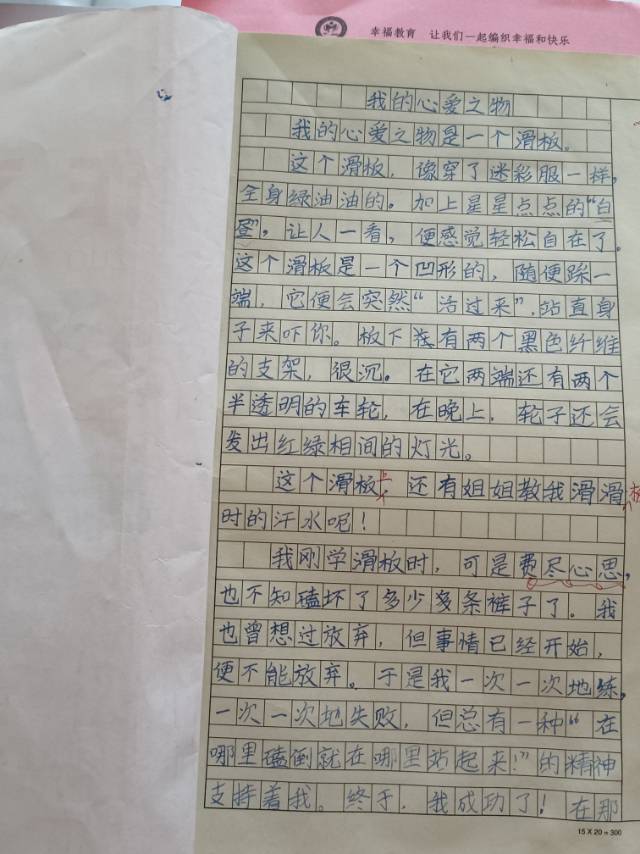 幸福教育 让我们一起编织幸福和快乐
我的心爱之物
我的心爱之物是一个滑板。
这个滑板，像穿了迷彩服一样，
全身绿油油的。加上星星点点的“白
蛋”，让人一看，便感觉轻松自在了。
这个滑板是一个凹形的，随便踩一
端，它便会突然“活过来”，站直身
子来吓你。板下装有两个黑色纤维
的支架，很沉。在它两端还有两个
半透明的车轮，在晚上，轮子还会
发出红绿相间的灯光。
这个滑板上，还有姐姐教我滑滑板
时的汗水呢！
我刚学滑板时，可是费尽心思，
也不知磕坏了多少多条裤子了。我
也曾想过放弃，但事情已经开始，
便不能放弃。于是我一次一次地练，
一次一次地失败，但总有一种“在
哪里磕倒就在哪里站起来！”的精神
支持着我。终于，我成功了！在那
15 X 20 = 300